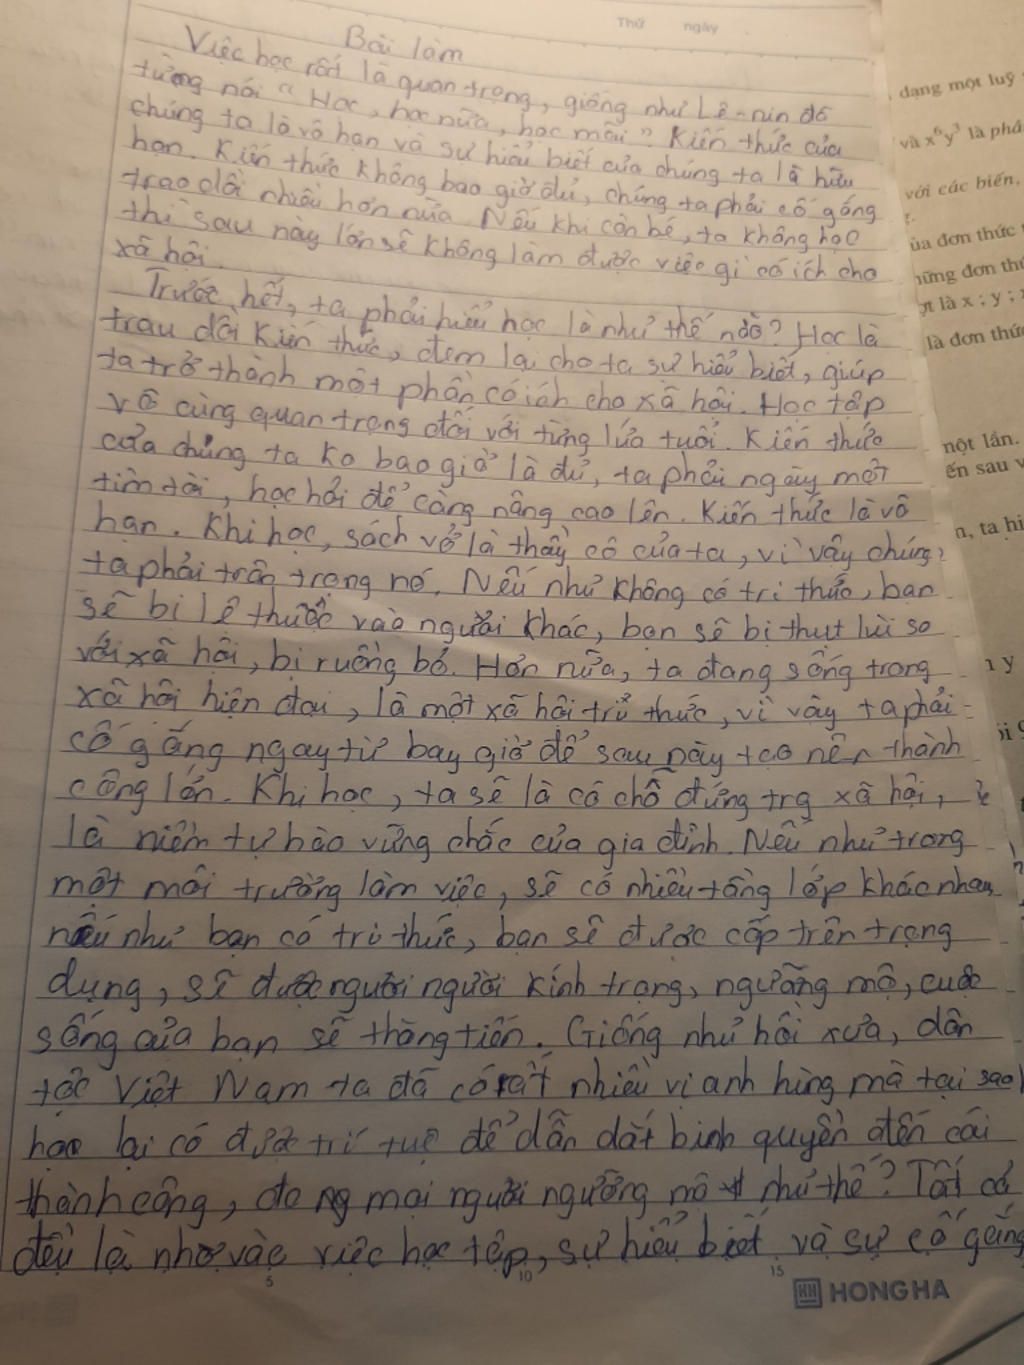 Thứ ngày
Bài làm
Việc học rất là quan trọng, giống như Lê-nin đã
từng nói "Học, học nữa, học mãi" Kiến thức của
chúng ta là vô hạn và sự hiểu biết của chúng ta là hữu
hạn. Kiến thức không bao giờ đủ, chúng ta phải cố gắng
trao dồi nhiều hơn nữa. Nếu khi còn bé, ta không học
thì sau này lớn sẽ không làm được việc gì có ích cho
xã hội.
Trước hết, ta phải hiểu học là như thế nào? Học là
trau dồi kiến thức, đem lại cho ta sự hiểu biết, giúp
ta trở thành một phần có ích cho xã hội. Học tập
vô cùng quan trọng đối với từng lứa tuổi. Kiến thức
của chúng ta ko bao giờ là đủ, ta phải ngày một
tìm tòi, học hỏi để càng nâng cao lên. Kiến thức là vô
hạn. Khi học, sách vở là thầy cô của ta, vì vậy chúng
ta phải trân trọng nó. Nếu như không có tri thức, bạn
sẽ bị lệ thuộc vào người khác, bạn sẽ bị thụt lùi so
với xã hội, bị ruồng bỏ. Hơn nữa, ta đang sống trong
xã hội hiện đại, là một xã hội trí thức, vì vậy ta phải
cố gắng ngay từ bay giờ để sau này tạo nên thành
công lớn. Khi học, ta sẽ là có chỗ đứng trg xã hội,
là niềm tự hào vững chắc của gia đình. Nếu như trong
một môi trường làm việc, sẽ có nhiều tầng lớp khác nhau
nếu như bạn có tri thức, bạn sẽ được cấp trên trọng
dụng, sẽ được người người kính trọng, ngưỡng mộ, cuộc
sống của bạn sẽ thăng tiến. Giống như hồi xưa, dân
tộc Việt Nam ta đã có rất nhiều vị anh hùng mà tại sao
học lại có được trí tuệ để dẫn dắt binh quyền đến cái
thành công, mọi người ngưỡng mộ như thế? Tất cả
đều là nhờ vào việc học tập, sự hiểu biết và sự cố gắng
5 10 15
HH HONG HA
dạng một luỹ
và x⁶y³ là phầ
với các biến,
ủa đơn thức
hững đơn thứ
ợt là x ; y ;
là đơn thức
một lần.
ến sau v
n, ta hi